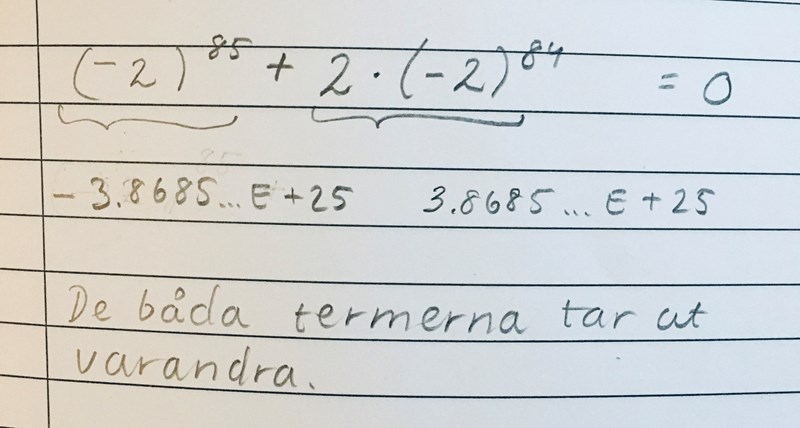 (-2)⁸⁵ + 2 · (-2)⁸⁴ = 0
- 3.8685... E +25 3.8685... E +25
De båda termerna tar ut
varandra.